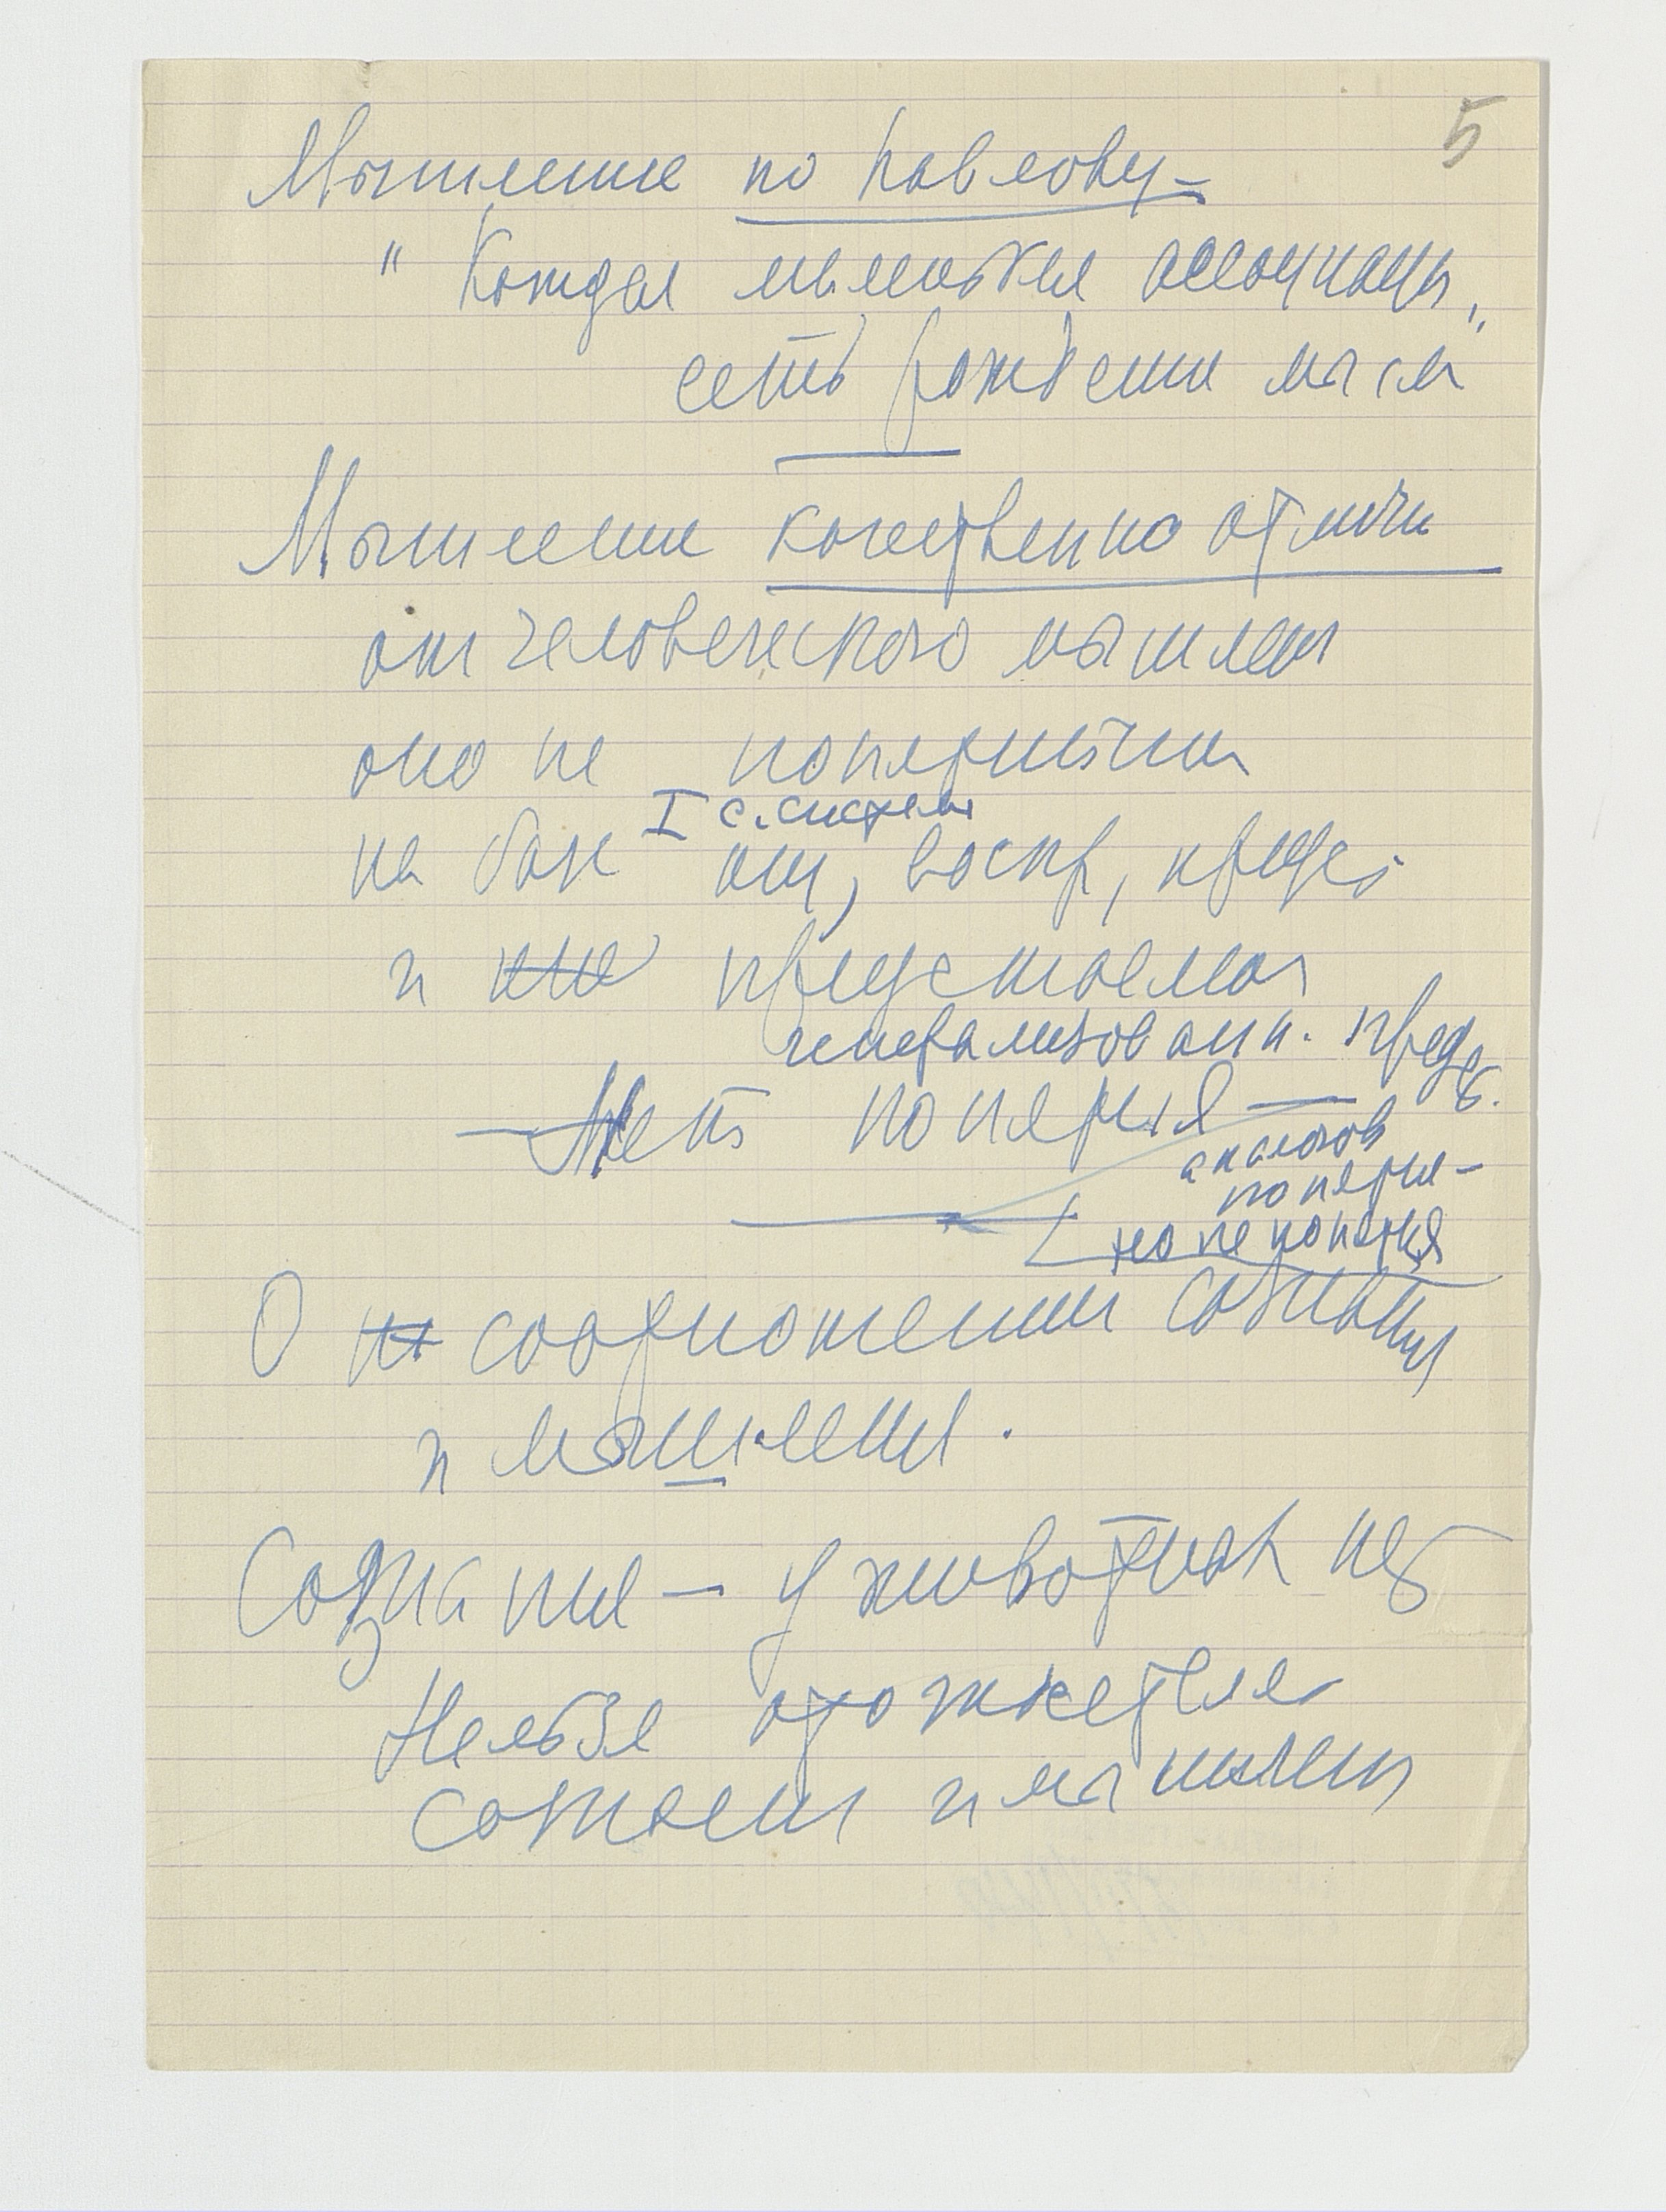 5
Мышление по Павлову –
" Каждая маленькая ассоциация
есть рождение мысл"
Мышление качественно отличн
от человеческого мышлен
оно не понятийн
I с. системы
на базе ощ, воспр, предс
и представлен
генерализованн. предс.
— Нет понятия —
аналогов
понятия –
но не понятия
О соотношении сознания
и мышления.
Сознание — у животных нет
Нельзя отождествля
сознани и мышлен